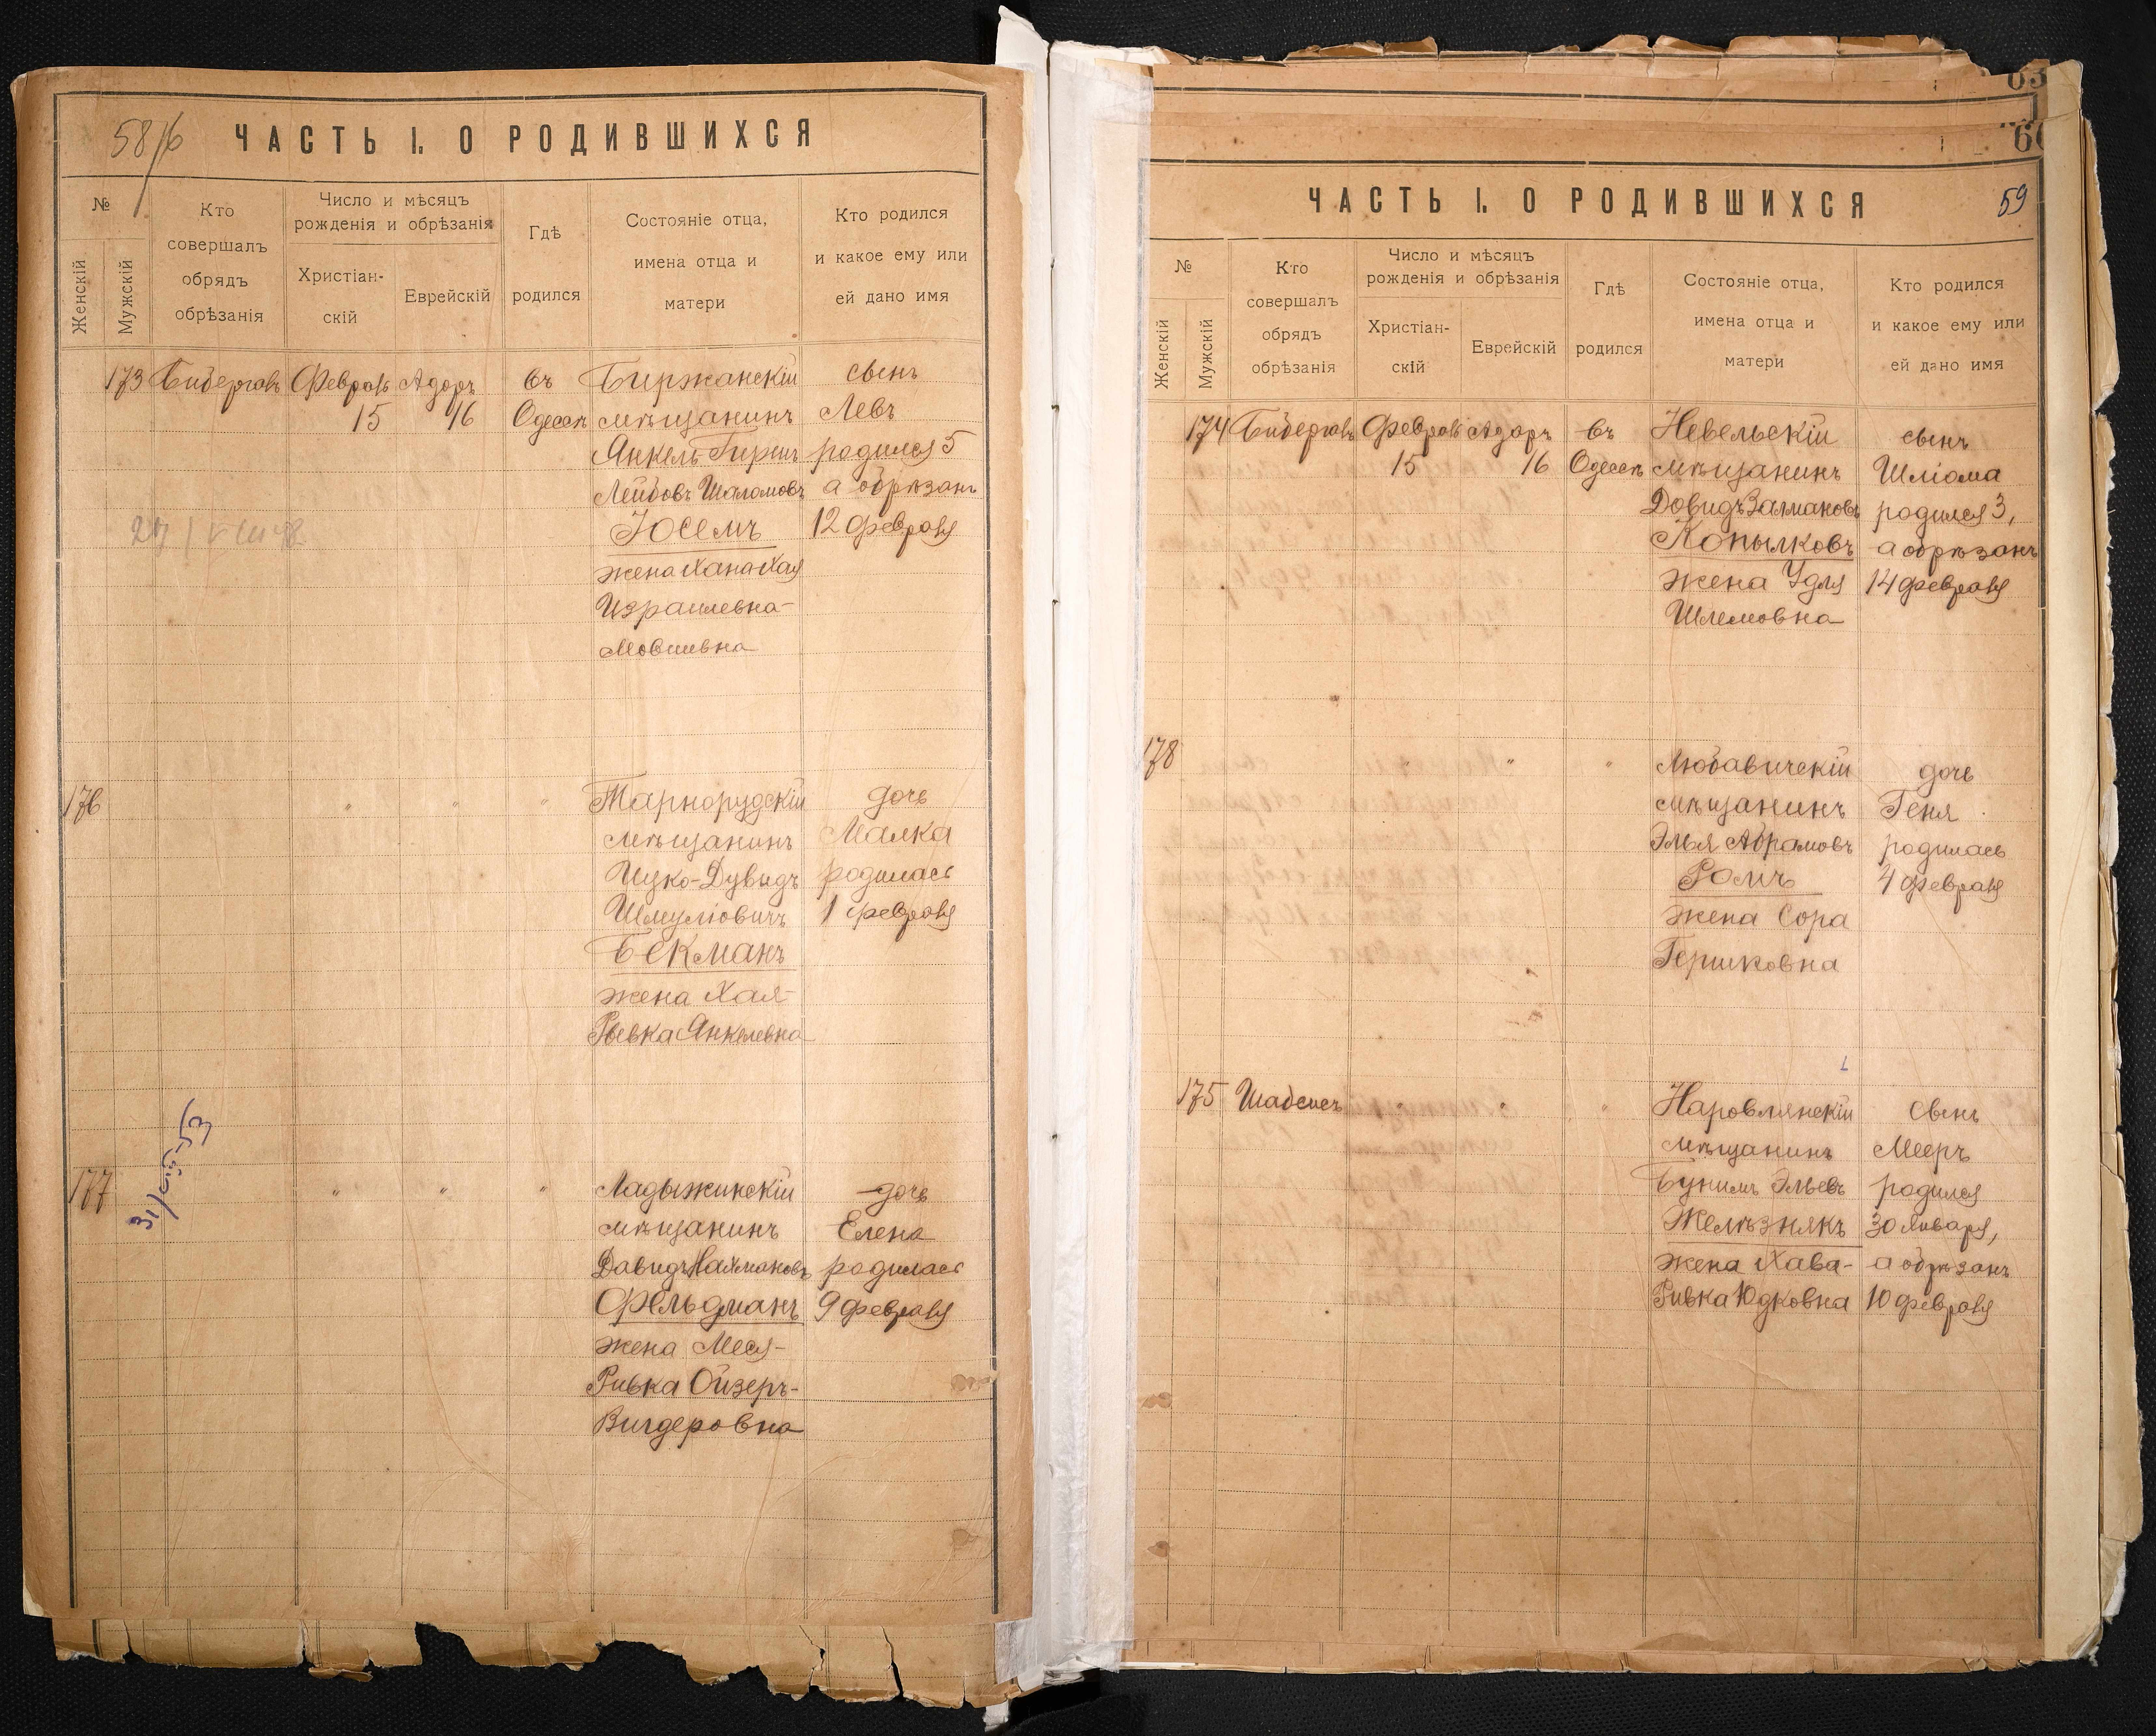 58/6
ЧАСТЬ I. О РОДИВШИХСЯ
№
Женскій
Мужскій
Кто
совершалъ
обрядъ
обрѣзанія
Число и мѣсяцъ
рожденія и обрѣзанія
Христіан-
скій
Еврейскій
Гдѣ
родился
Состояніе отца,
имена отца и
матери
Кто родился
и какое ему или
ей дано имя
173 Бидерганъ Февраль Адаръ въ Биржанскій сынъ
15 16 Одессѣ мѣщанинъ Левъ
Янкель-Гиршъ родился 5
Лейбовъ Шаломовъ а обрѣзанъ
Юсемъ 12 февраля
жена Хана-Хая
Израилевна-
Мовшивна
176 " " " Тарнорудскій дочь
мѣщанинъ Малка
Ицко-Дувидъ родилась
Шмуліовичъ 1 февраля
Бекманъ
жена Хая-
Рывка Янкелевна
31/
177 " " " Ладыжинскій дочь
мѣщанинъ Елена
Давидъ Нахмановъ родилась
Фельдманъ 9 февраля
жена Меся-
Ривка Ойзеръ-
Вигдеровна
63
60
ЧАСТЬ I. О РОДИВШИХСЯ 59
№
Женскій
Мужскій
Кто
совершалъ
обрядъ
обрѣзанія
Число и мѣсяцъ
рожденія и обрѣзанія
Христіан-
скій
Еврейскій
Гдѣ
родился
Состояніе отца,
имена отца и
матери
Кто родился
и какое ему или
ей дано имя
174 Бидерганъ Февраль Адаръ въ Невельскій сынъ
15 16 Одессѣ мѣщанинъ Шліома
Довидъ Залмановъ родился 3,
Копылковъ а обрѣзанъ
жена Удля 14 февраля
Шлемовна
178 " " " Любавичскій дочь
мѣщанинъ Геня
Элья Абрамовъ родилась
Ромъ 4 февраля
жена Сора
Гершковна
175 Шабсисъ " " " Наровлянскій сынъ
мѣщанинъ Мееръ
Бунимъ Эльевъ родился
Желѣзнякъ 30 января,
жена Хава- а обрѣзанъ
Ривка Юдковна 10 февраля